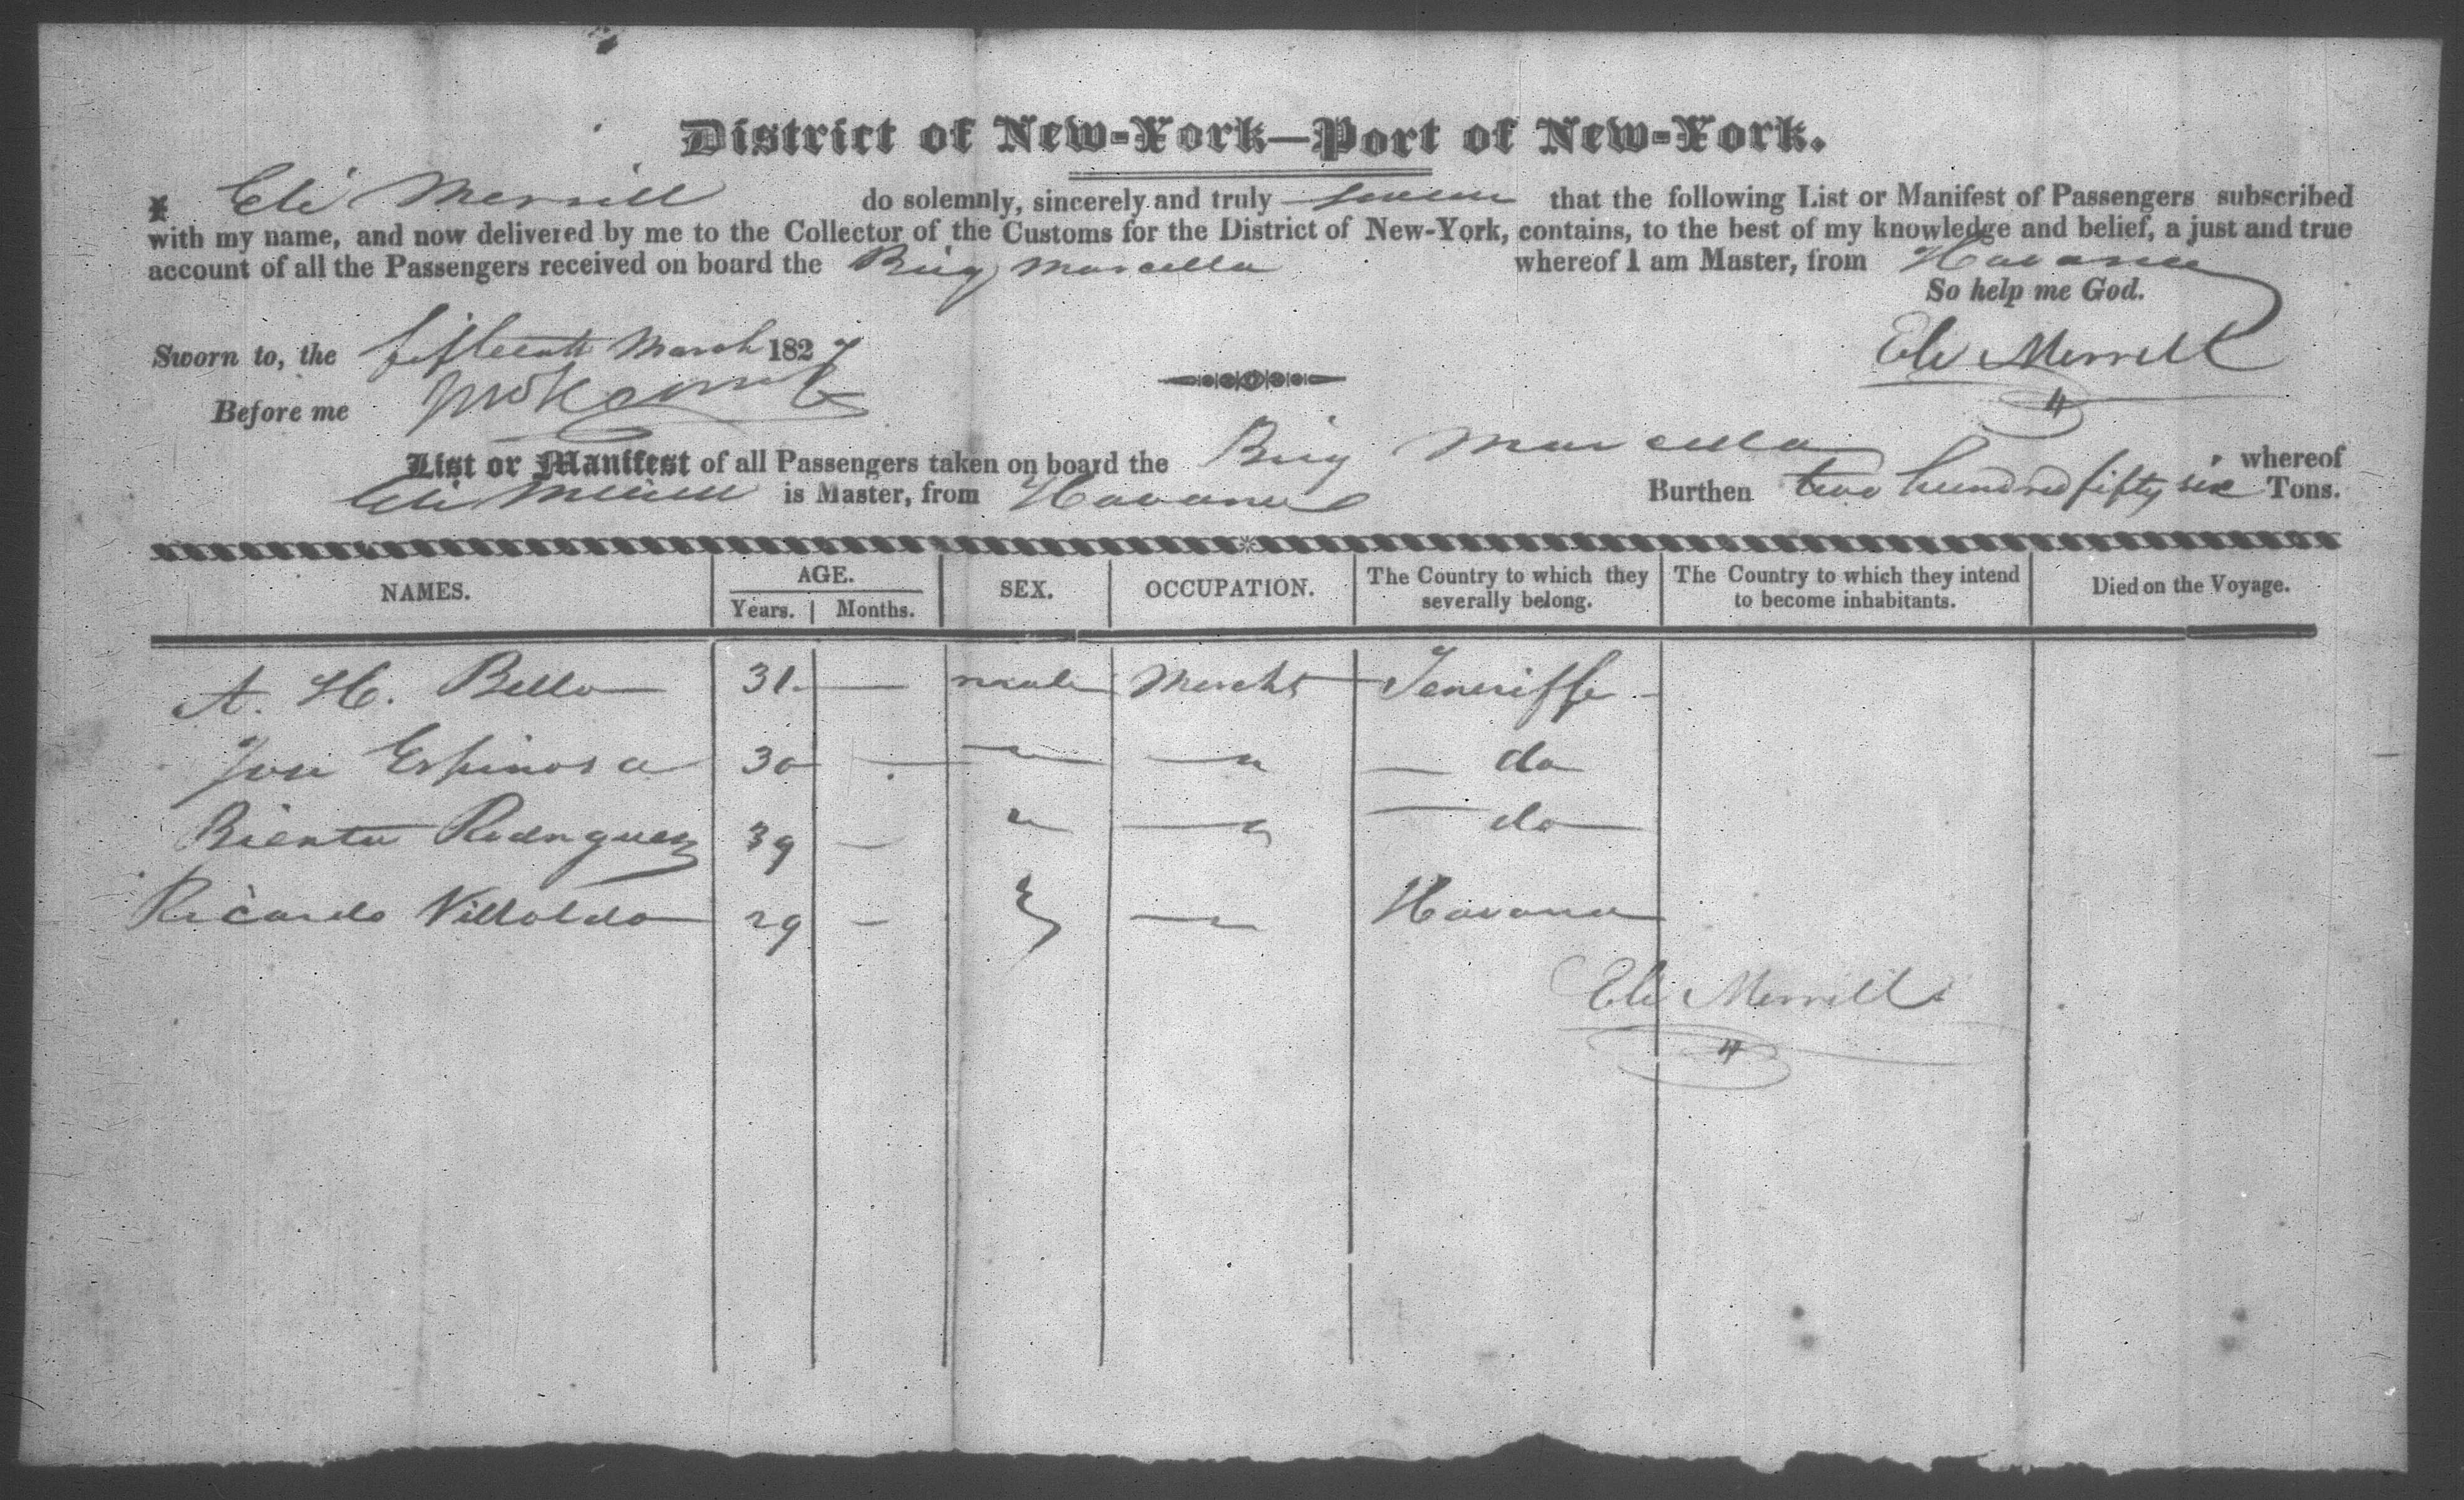 District of New-York—Port of New-York.
I Eli Merrill do solemnly, sincerely and truly swear that the following List or Manifest of Passengers subscribed
with my name, and now delivered by me to the Collector of the Customs for the District of New-York, contains, to the best of my knowledge and belief, a just and true
account of all the Passengers received on board the Brig Marcella whereof I am Master, from Havana
So help me God.
Sworn to, the fifteenth March 1827
Eli Merrill
Before me
List or Manifest of all Passengers taken on board the Brig Marcella whereof
Eli Merrill is Master, from Havana Burthen two hundred fifty six Tons.
NAMES. AGE. SEX. OCCUPATION. The Country to which they severally belong. The Country to which they intend to become inhabitants. Died on the Voyage.
Years. Months.
A. H. Bello 31 — male Mercht Teneriffe
Jose Espinosa 30 — " " — do
Rodriguez 39 — " " — do
Ricardo Villoldo 29 — " Havana
Eli Merrill